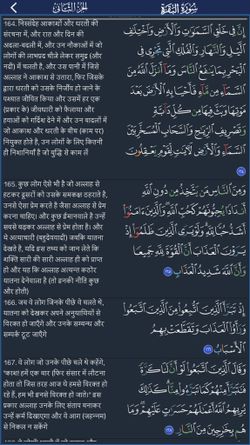 سُورَةُ البَقَرَةِ
الجُزءُ الثَّانِي
164. निस्संदेह आकाशों और धरती की
संरचना में, और रात और दिन की
अदला-बदली में, और उन नौकाओं में जो
लोगों की लाभप्रद चीज़े लेकर समुद्र (और
नदी) में चलती है, और उस पानी में जिसे
अल्लाह ने आकाश से उतारा, फिर जिसके
द्वारा धरती को उसके निर्जीव हो जाने के
पश्चात जीवित किया और उसमें हर एक
(प्रकार के) जीवधारी को फैलाया और
हवाओं को गर्दिश देने में और उन बादलों में
जो आकाश और धरती के बीच (काम पर)
नियुक्त होते है, उन लोगों के लिए कितनी
ही निशानियाँ है जो बुद्धि से काम लें
إِنَّ فِي خَلْقِ السَّمَاوَاتِ وَالْأَرْضِ وَاخْتِلَافِ
اللَّيْلِ وَالنَّهَارِ وَالْفُلْكِ الَّتِي تَجْرِي فِي
الْبَحْرِ بِمَا يَنفَعُ النَّاسَ وَمَا أَنزَلَ اللَّهُ مِنَ
السَّمَاءِ مِن مَّاءٍ فَأَحْيَا بِهِ الْأَرْضَ بَعْدَ
مَوْتِهَا وَبَثَّ فِيهَا مِن كُلِّ دَابَّةٍ
وَتَصْرِيفِ الرِّيَاحِ وَالسَّحَابِ الْمُسَخَّرِ بَيْنَ
السَّمَاءِ وَالْأَرْضِ لَآيَاتٍ لِّقَوْمٍ يَعْقِلُونَ
١٦٤
165. कुछ लोग ऐसे भी है जो अल्लाह से
हटकर दूसरों को उसके समकक्ष ठहराते है,
उनसे ऐसा प्रेम करते है जैसा अल्लाह से प्रेम
करना चाहिए। और कुछ ईमानवाले है उन्हें
सबसे बढ़कर अल्लाह से प्रेम होता है। और
ये अत्याचारी (बहुदेववादी) जबकि यातना
देखते है, यदि इस तथ्य को जान लेते कि
शक्ति सारी की सारी अल्लाह ही को प्राप्त
हो और यह कि अल्लाह अत्यन्त कठोर
यातना देनेवाला है (तो इनकी नीति कुछ
और होती)
وَمِنَ النَّاسِ مَن يَتَّخِذُ مِن دُونِ اللَّهِ
أَندَادًا يُحِبُّونَهُمْ كَحُبِّ اللَّهِ وَالَّذِينَ آمَنُوا
أَشَدُّ حُبًّا لِّلَّهِ وَلَوْ يَرَى الَّذِينَ ظَلَمُوا إِذْ
يَرَوْنَ الْعَذَابَ أَنَّ الْقُوَّةَ لِلَّهِ جَمِيعًا
وَأَنَّ اللَّهَ شَدِيدُ الْعَذَابِ ١٦٥
166. जब वे लोग जिनके पीछे वे चलते थे,
यातना को देखकर अपने अनुयायियों से
विरक्त हो जाएँगे और उनके सम्बन्ध और
सम्पर्क टूट जाएँगे
إِذْ تَبَرَّأَ الَّذِينَ اتُّبِعُوا مِنَ الَّذِينَ اتَّبَعُوا
وَرَأَوُا الْعَذَابَ وَتَقَطَّعَتْ بِهِمُ
الْأَسْبَابُ ١٦٦
167. वे लोग जो उनके पीछे चले थे कहेंगे,
"काश! हमें एक बार (फिर संसार में लौटना
होता तो जिस तरह आज ये हमसे विरक्त हो
रहे हैं, हम भी इनसे विरक्त हो जाते।" इस
प्रकार अल्लाह उनके लिए संताप बनाकर
उन्हें कर्म दिखाएगा और वे आग (जहन्नम)
से निकल न सकेंगे
وَقَالَ الَّذِينَ اتَّبَعُوا لَوْ أَنَّ لَنَا كَرَّةً
فَنَتَبَرَّأَ مِنْهُمْ كَمَا تَبَرَّءُوا مِنَّا كَذَٰلِكَ
يُرِيهِمُ اللَّهُ أَعْمَالَهُمْ حَسَرَاتٍ عَلَيْهِمْ وَمَا
هُم بِخَارِجِينَ مِنَ النَّارِ ١٦٧